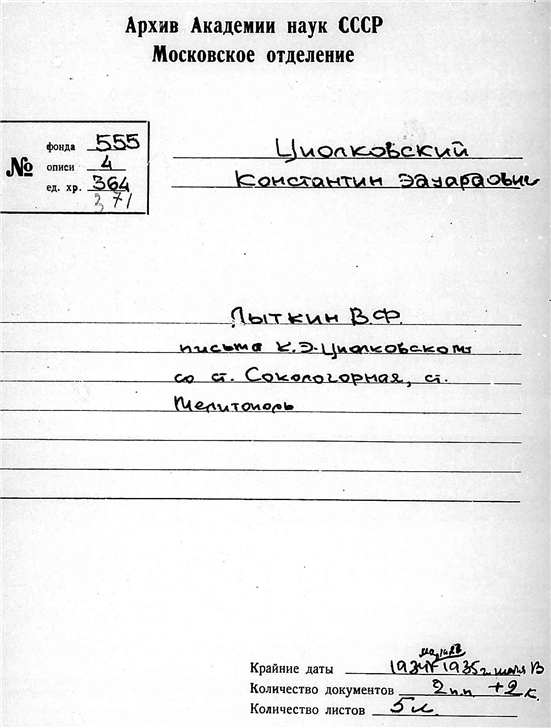 Архив Академии наук СССР
Московское отделение
№
фонда 555
описи 4
ед. хр. 364
371
Циолковский
Константин Эдуардович
Лыткин В.Ф.
письма К.Э. Циолковскому
со ст. Сокологорная, ст.
Мелитополь
Крайние даты 1934г 1935г. июля 13
Количество документов 2 п.п. +2 к.
Количество листов 5 л.